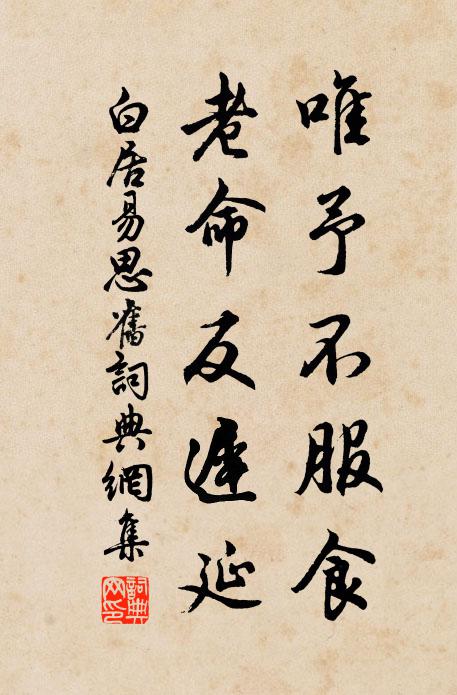 唯予不服食
老命反遲延
白居易思舊詞典網集
詞典
网印